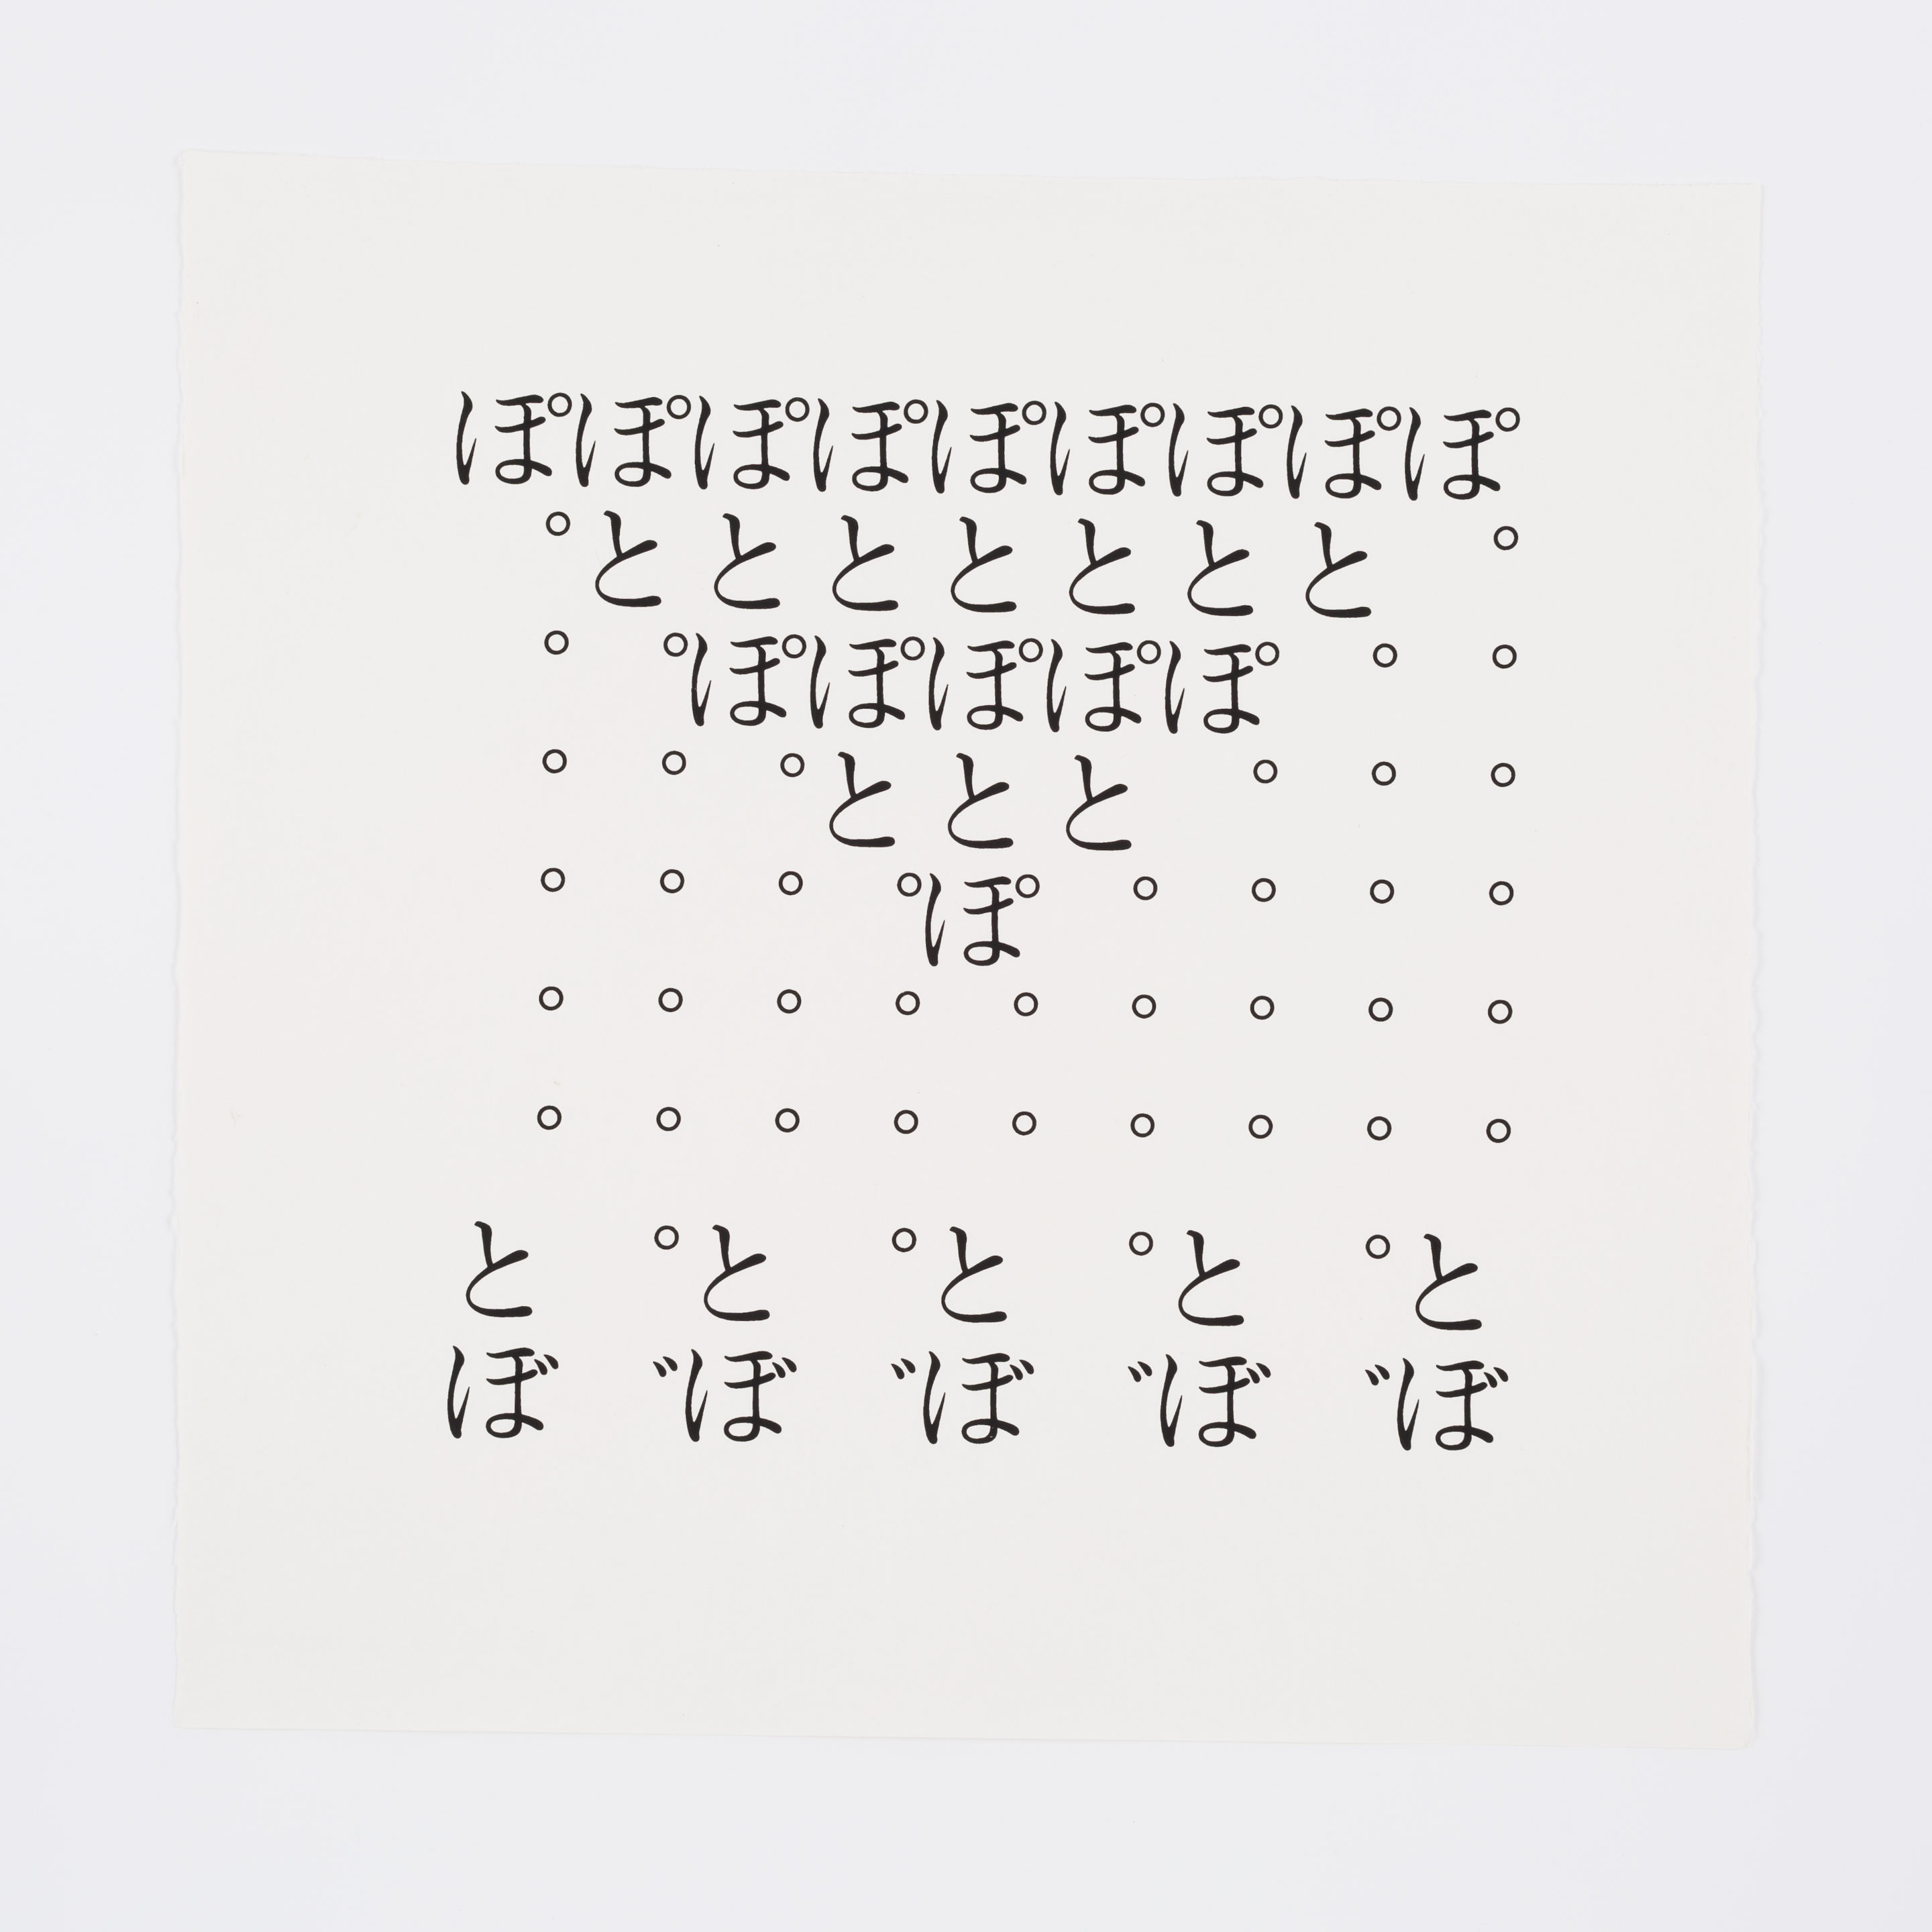 ぽぽぽぽぽぽぽぽぽ
゜ととととととと゜
゜゜ぽぽぽぽぽ゜゜
゜゜゜ととと゜゜゜
゜゜゜゜ぽ゜゜゜゜
゜゜゜゜゜゜゜゜゜
゜゜゜゜゜゜゜゜゜
と゜と゜と゜と゜と
ぼ゛ぼ゛ぼ゛ぼ゛ぼ